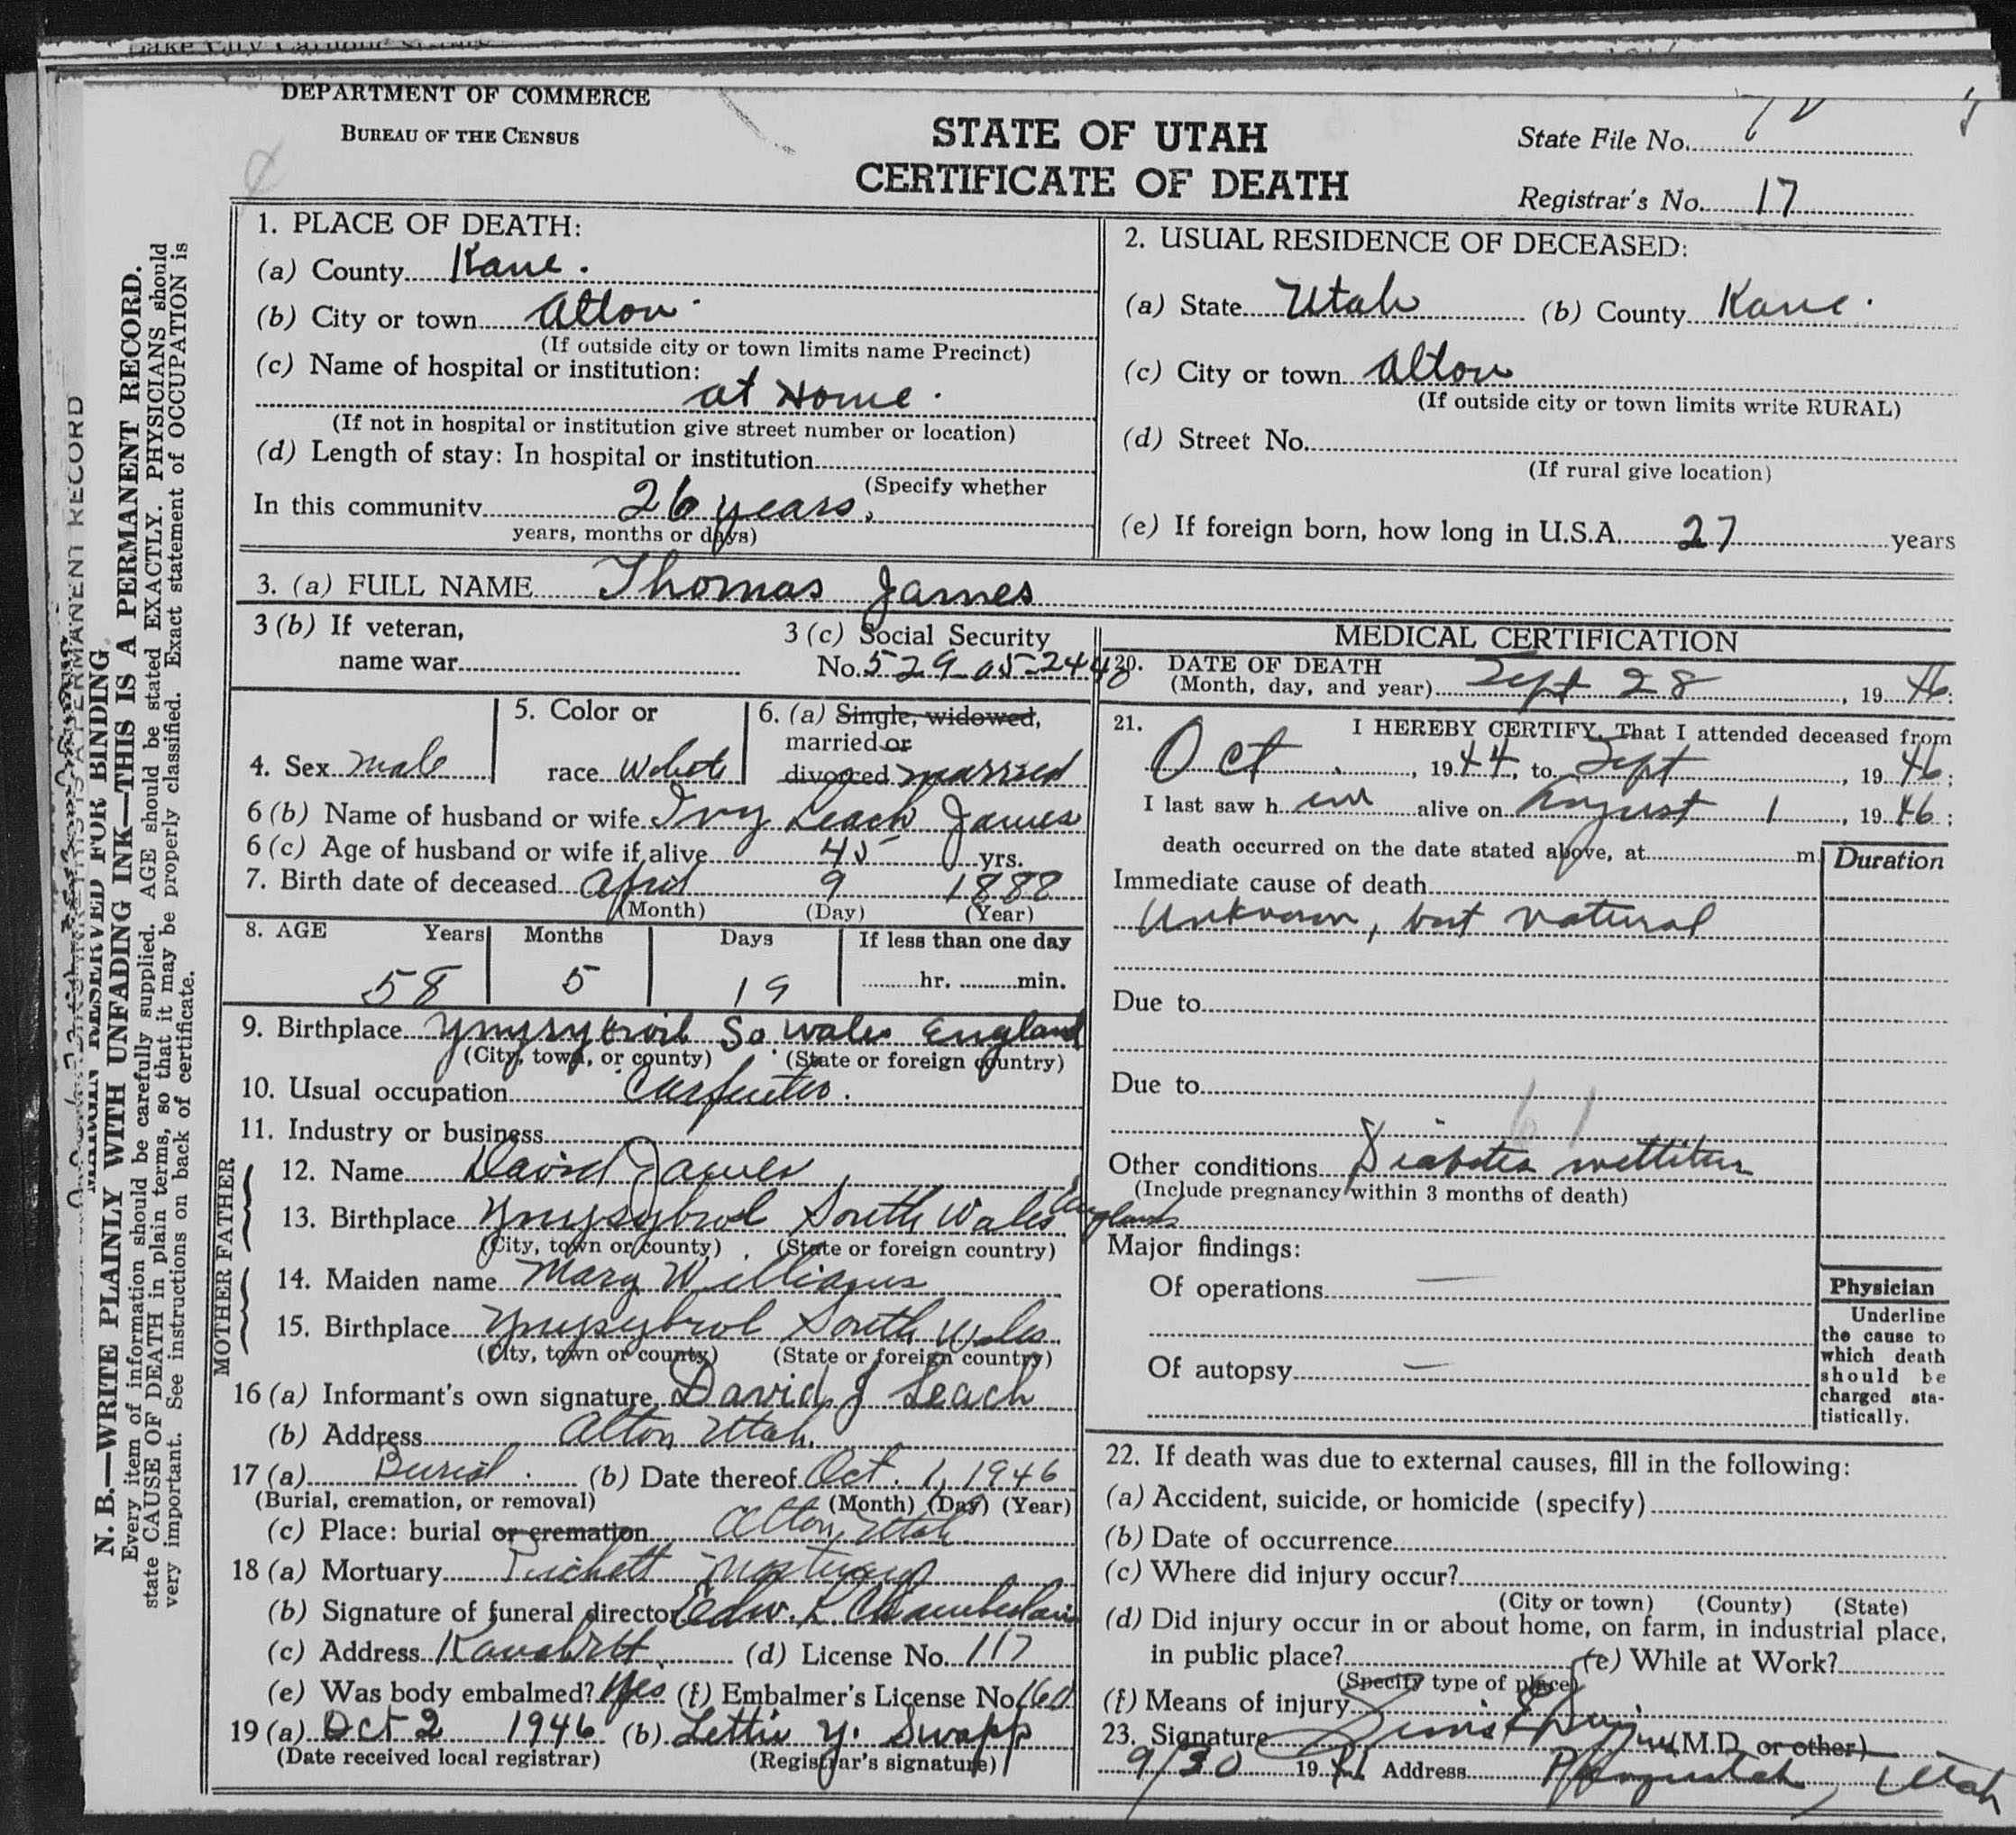 DEPARTMENT OF COMMERCE
BUREAU OF THE CENSUS
STATE OF UTAH
CERTIFICATE OF DEATH
State File No.
Registrar's No. 17
MARGIN RESERVED FOR BINDING
N. B.—WRITE PLAINLY WITH UNFADING INK—THIS IS A PERMANENT RECORD.
Every item of information should be carefully supplied. AGE should be stated EXACTLY. PHYSICIANS should
state CAUSE OF DEATH in plain terms, so that it may be properly classified. Exact statement of OCCUPATION is
very important. See instructions on back of certificate.
1. PLACE OF DEATH:
(a) County Kane.
(b) City or town Alton.
(If outside city or town limits name Precinct)
(c) Name of hospital or institution:
at Home.
(If not in hospital or institution give street number or location)
(d) Length of stay: In hospital or institution
(Specify whether
In this community 26 years,
years, months or days)
2. USUAL RESIDENCE OF DECEASED:
(a) State Utah (b) County Kane.
(c) City or town Alton
(If outside city or town limits write RURAL)
(d) Street No.
(If rural give location)
(e) If foreign born, how long in U.S.A. 27 years
3. (a) FULL NAME Thomas James
3 (b) If veteran,
name war
3 (c) Social Security
No. 529-05-2440
4. Sex male
5. Color or
race White
6. (a) Single, widowed,
married or
divorced married
6 (b) Name of husband or wife Ivy Leach James
6 (c) Age of husband or wife if alive 45 yrs.
7. Birth date of deceased April 9 1888
(Month) (Day) (Year)
8. AGE Years Months Days If less than one day
58 5 19 hr. min.
9. Birthplace So. Wales England
(City, town, or county) (State or foreign country)
10. Usual occupation Carpenter.
11. Industry or business
FATHER
12. Name David James
13. Birthplace Ynysybwl South Wales England
(City, town or county) (State or foreign country)
MOTHER
14. Maiden name Mary Williams
15. Birthplace Ynysybwl South Wales
(City, town or county) (State or foreign country)
16 (a) Informant's own signature David J Leach
(b) Address Alton Utah.
17 (a) Burial. (b) Date thereof Oct. 1, 1946
(Burial, cremation, or removal) (Month) (Day) (Year)
(c) Place: burial or cremation Alton, Utah
18 (a) Mortuary Mortuary
(b) Signature of funeral director Edw. L. Chamberlain
(c) Address Kanab Ut. (d) License No. 117
(e) Was body embalmed? Yes (f) Embalmer's License No. 160
19 (a) Oct 2 1946 (b) Lettie Y. Swapp
(Date received local registrar) (Registrar's signature)
MEDICAL CERTIFICATION
20. DATE OF DEATH
(Month, day, and year) Sept 28, 1946:
21. I HEREBY CERTIFY, That I attended deceased from
Oct, 1944, to Sept, 1946;
I last saw him alive on August 1, 1946;
death occurred on the date stated above, at m.
Duration
Immediate cause of death
Unknown, but natural
Due to
Due to
61
Other conditions Diabetes mellitus
(Include pregnancy within 3 months of death)
Major findings:
Of operations —
Of autopsy —
Physician
Underline
the cause to
which death
should be
charged sta-
tistically.
22. If death was due to external causes, fill in the following:
(a) Accident, suicide, or homicide (specify)
(b) Date of occurrence
(c) Where did injury occur?
(City or town) (County) (State)
(d) Did injury occur in or about home, on farm, in industrial place,
in public place? (e) While at Work?
(Specify type of place)
(f) Means of injury
23. Signature (M.D. or other)
9/30 19 Address Utah